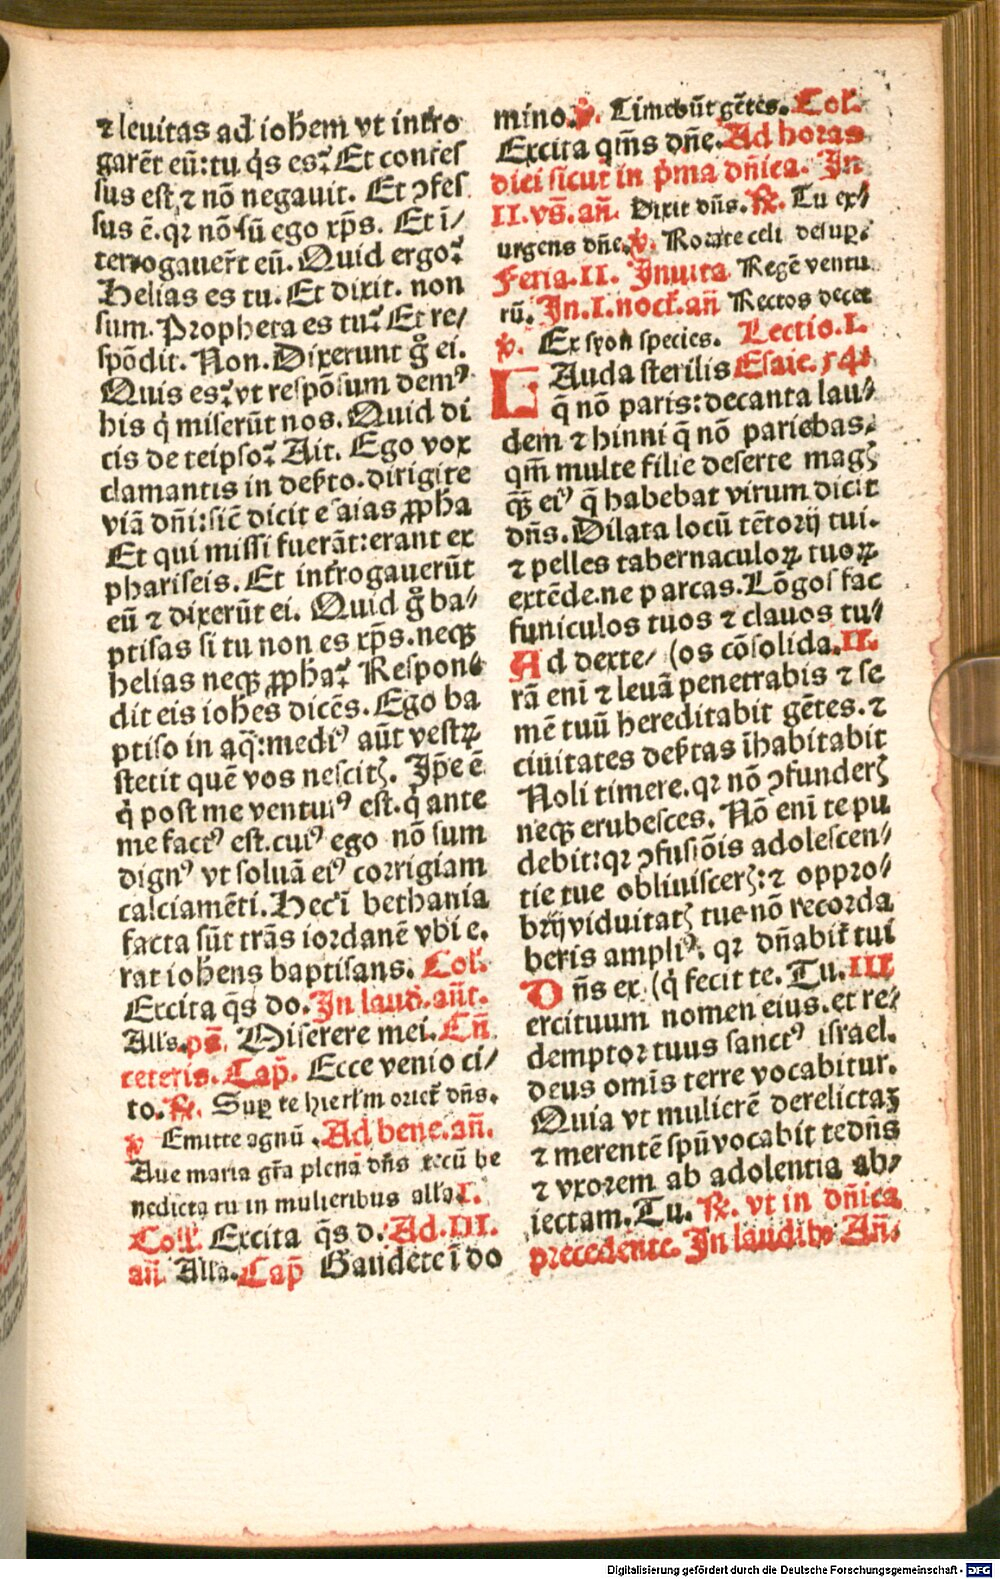 ⁊ leuitas ad ioħem vt intro
garēt eū:tu q̇s es? Et confes
sus est ⁊ nō negauit. Et ꝯfes
sus ē. qꝛ nō sū ego xp̄s. Et ī/
terrogauerūt eū. Quid ergo?
Helias es tu. Et dixit. non
sum. Propheta es tu? Et re/
spōdit. Non. Dixerunt g̊ ei.
Quis es? vt respōsum demꝰ
his q̇ miserūt nos. Quid di
cis de teipso? Ait. Ego vox
clamantis in deẜto. dirigite
viā dn̄i: sic̄ dicit esaias ꝓpha
Et qui missi fuerāt: erant ex
phariseis. Et introgauerūt
eū ⁊ dixerūt ei. Quid g̊ ba/
ptisas si tu non es xp̄s. neqꝫ
helias neqꝫ ꝓpha? Respon/
dit eis ioħes dicēs. Ego ba
ptiso in aq̄: mediꝰ aūt vestꝝ
stetit quē vos nescitꝭ. Ip̄e ē
q̇ post me venturꝰ est. q̇ ante
me factꝰ est. cuiꝰ ego nō sum
dignꝰ vt soluā eiꝰ corrigiam
calciamēti. Hec ī bethania
facta sūt trās iordanē vbi e.
rat ioħens baptisans. Col.
Excita q̄s do. In laud. an̄t.
Alľs. ps̄. Miserere mei. Cū
ceteris. Cap̄. Ecce venio ci/
to. ℟. Suꝑ te hierľm orieť dn̄s.
℣ Emitte agnū. Ad bene. an̄.
Aue maria gr̄a plena dn̄s tecū be
nedicta tu in mulieribus alľa. I.
Coll. Excita q̄s d. Ad. III.
an̄. Alľa. Cap̄ Gaudete ī do
mino. ℣. Timebūt gētes. Col.
Excita qm̄s dn̄e. Ad horas
diei sicut in p̄ma dn̄ica. In
II. vs̄. an̄. Dixit dn̄s. ℟. Tu ex/
urgens dn̄e. ℣. Rorate celi desuꝑ.
Feria. II. Inuita Regē ventu
rū. In. I. nocť. an̄ Rectos decet
℣. Ex syon species. Lectio. I.
LAuda sterilis Esaie. 54
q̄ nō paris: decanta lau/
dem ⁊ hinni q̄ nō pariebas.
qm̄ multe filie deserte magꝭ
qꝫ̄ eiꝰ q̄ habebat virum dicit
dn̄s. Dilata locū tētorij tui.
⁊ pelles tabernaculoꝝ tuoꝝ
extēde. ne parcas. Lōgos fac
funiculos tuos ⁊ clauos tu/
Ad dexte/ (os cōsolida. II.
rā eni ⁊ leuā penetrabis ⁊ se
mē tuū hereditabit gētes. ⁊
ciuitates deẜtas īhabitabit
Noli timere. qꝛ nō ꝯfunderꝭ
neqꝫ erubesces. Nō enī te pu
debit: qꝛ ꝯfusiōis adolescen/
tie tue obliuiscerꝭ: ⁊ oppro/
brij viduitatꝭ tue nō recorda
beris ampliꝰ. qꝛ dn̄abiť tui
Dn̄s ex (q̇ fecit te. Tu. III
ercituum nomen eius. et re/
demptor tuus sanctꝰ israel.
deus omīs terre vocabitur.
Quia vt mulierē derelictaꝫ
⁊ merentē spū vocabit te dn̄s
⁊ vxorem ab adolentia ab/
iectam. Tu. ℟. vt in dn̄ica
precedente. In laudibꝰ An̄.
Digitalisierung gefördert durch die Deutsche Forschungsgemeinschaft - DFG